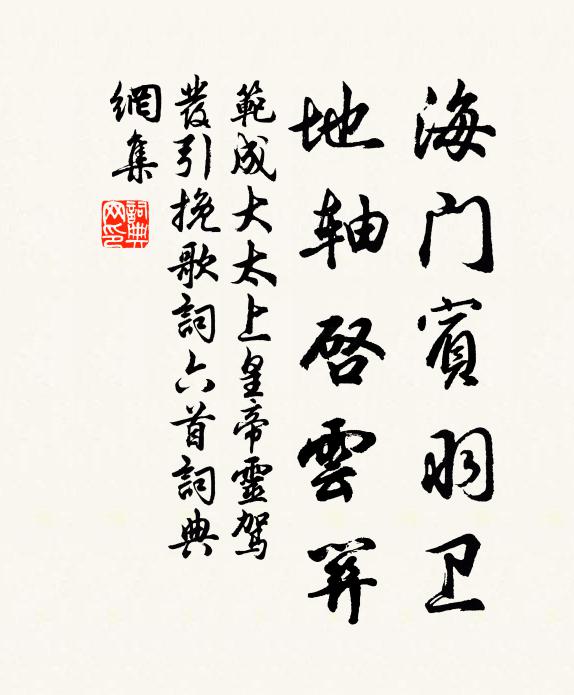 海门宾羽卫
地轴启雲笄
範成大太上皇帝靈駕
發引挽歌詞六首詞典
網集
詞典
网印